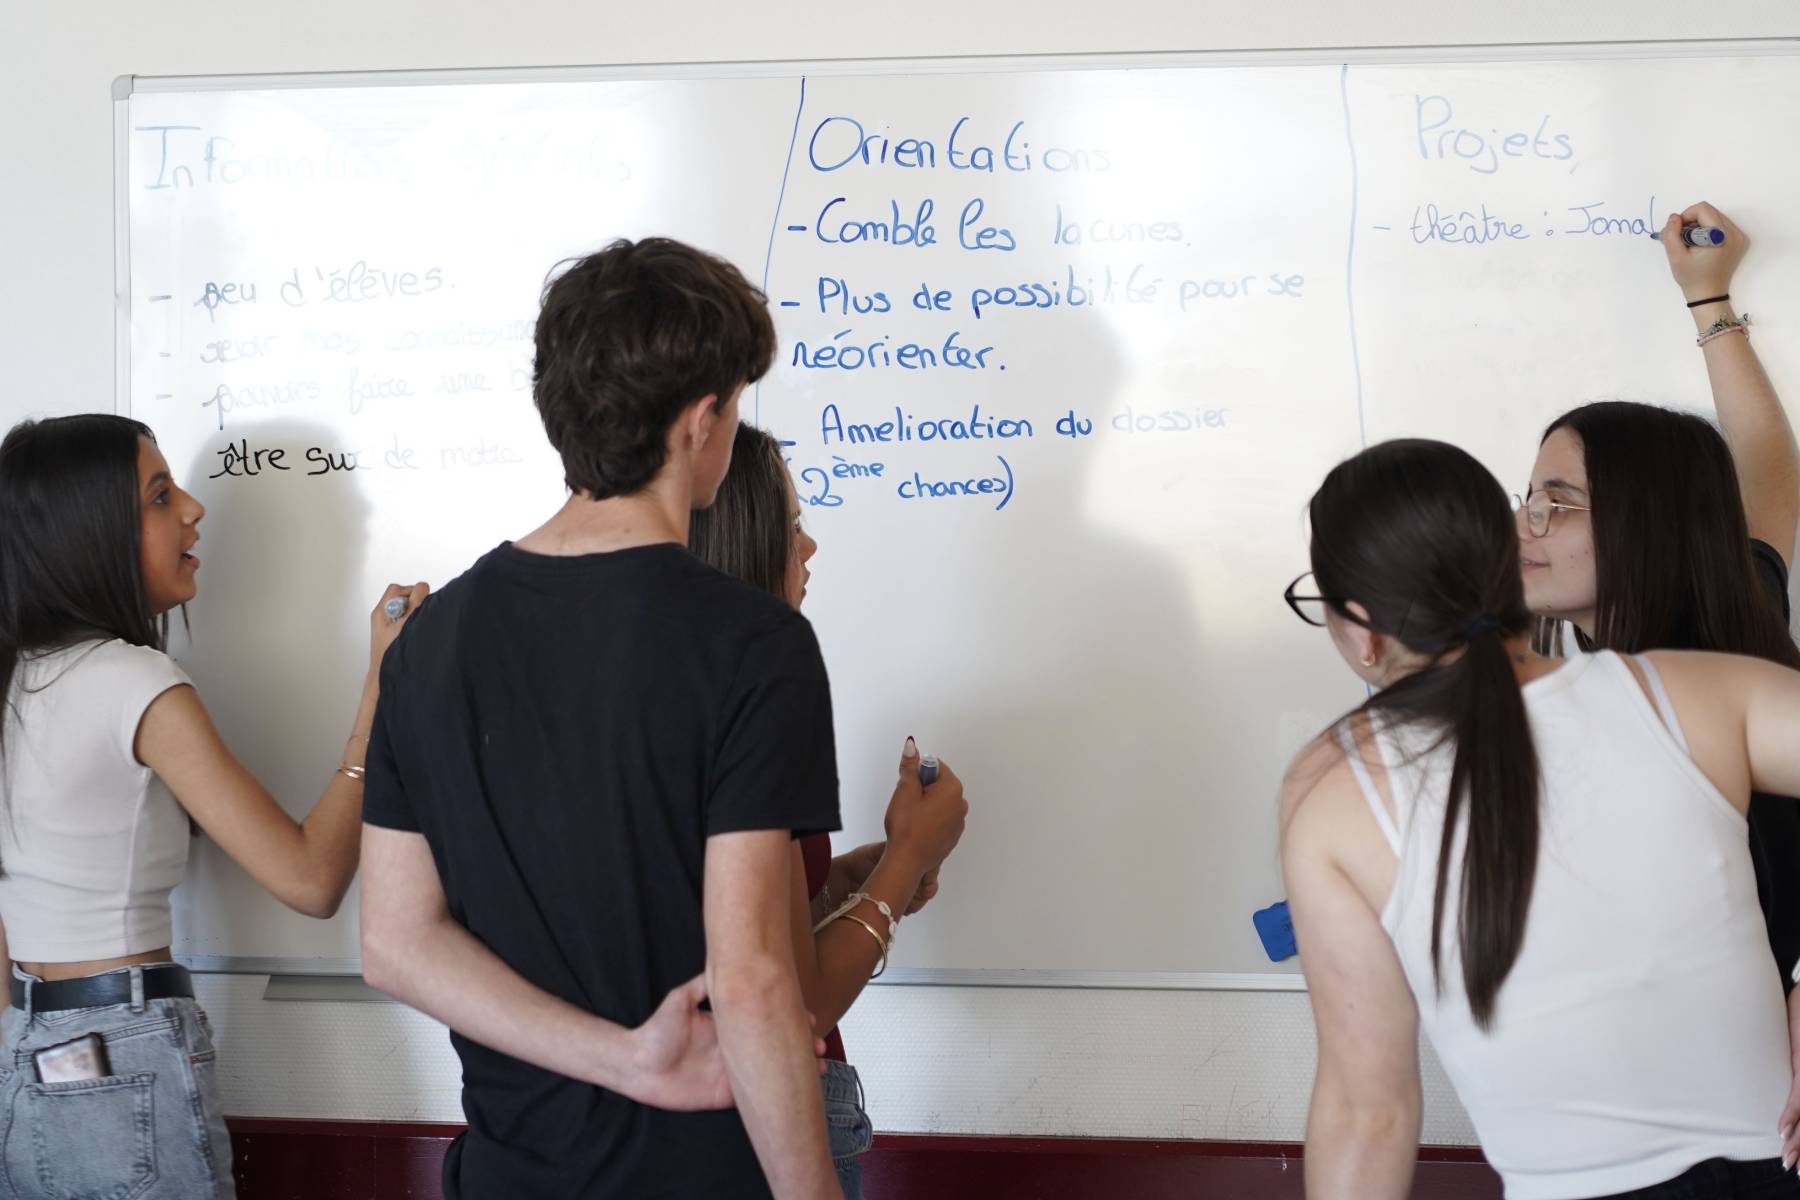 Informations générales
- peu d'élèves.
- revoir mes connaissan
- pouvoirs faire une b
être sur de
Orientations
- Comble les lacunes.
- Plus de possibilité pour se
réorienter.
- Amelioration du dossier
(2ème chances)
Projets
- théâtre : Jomal